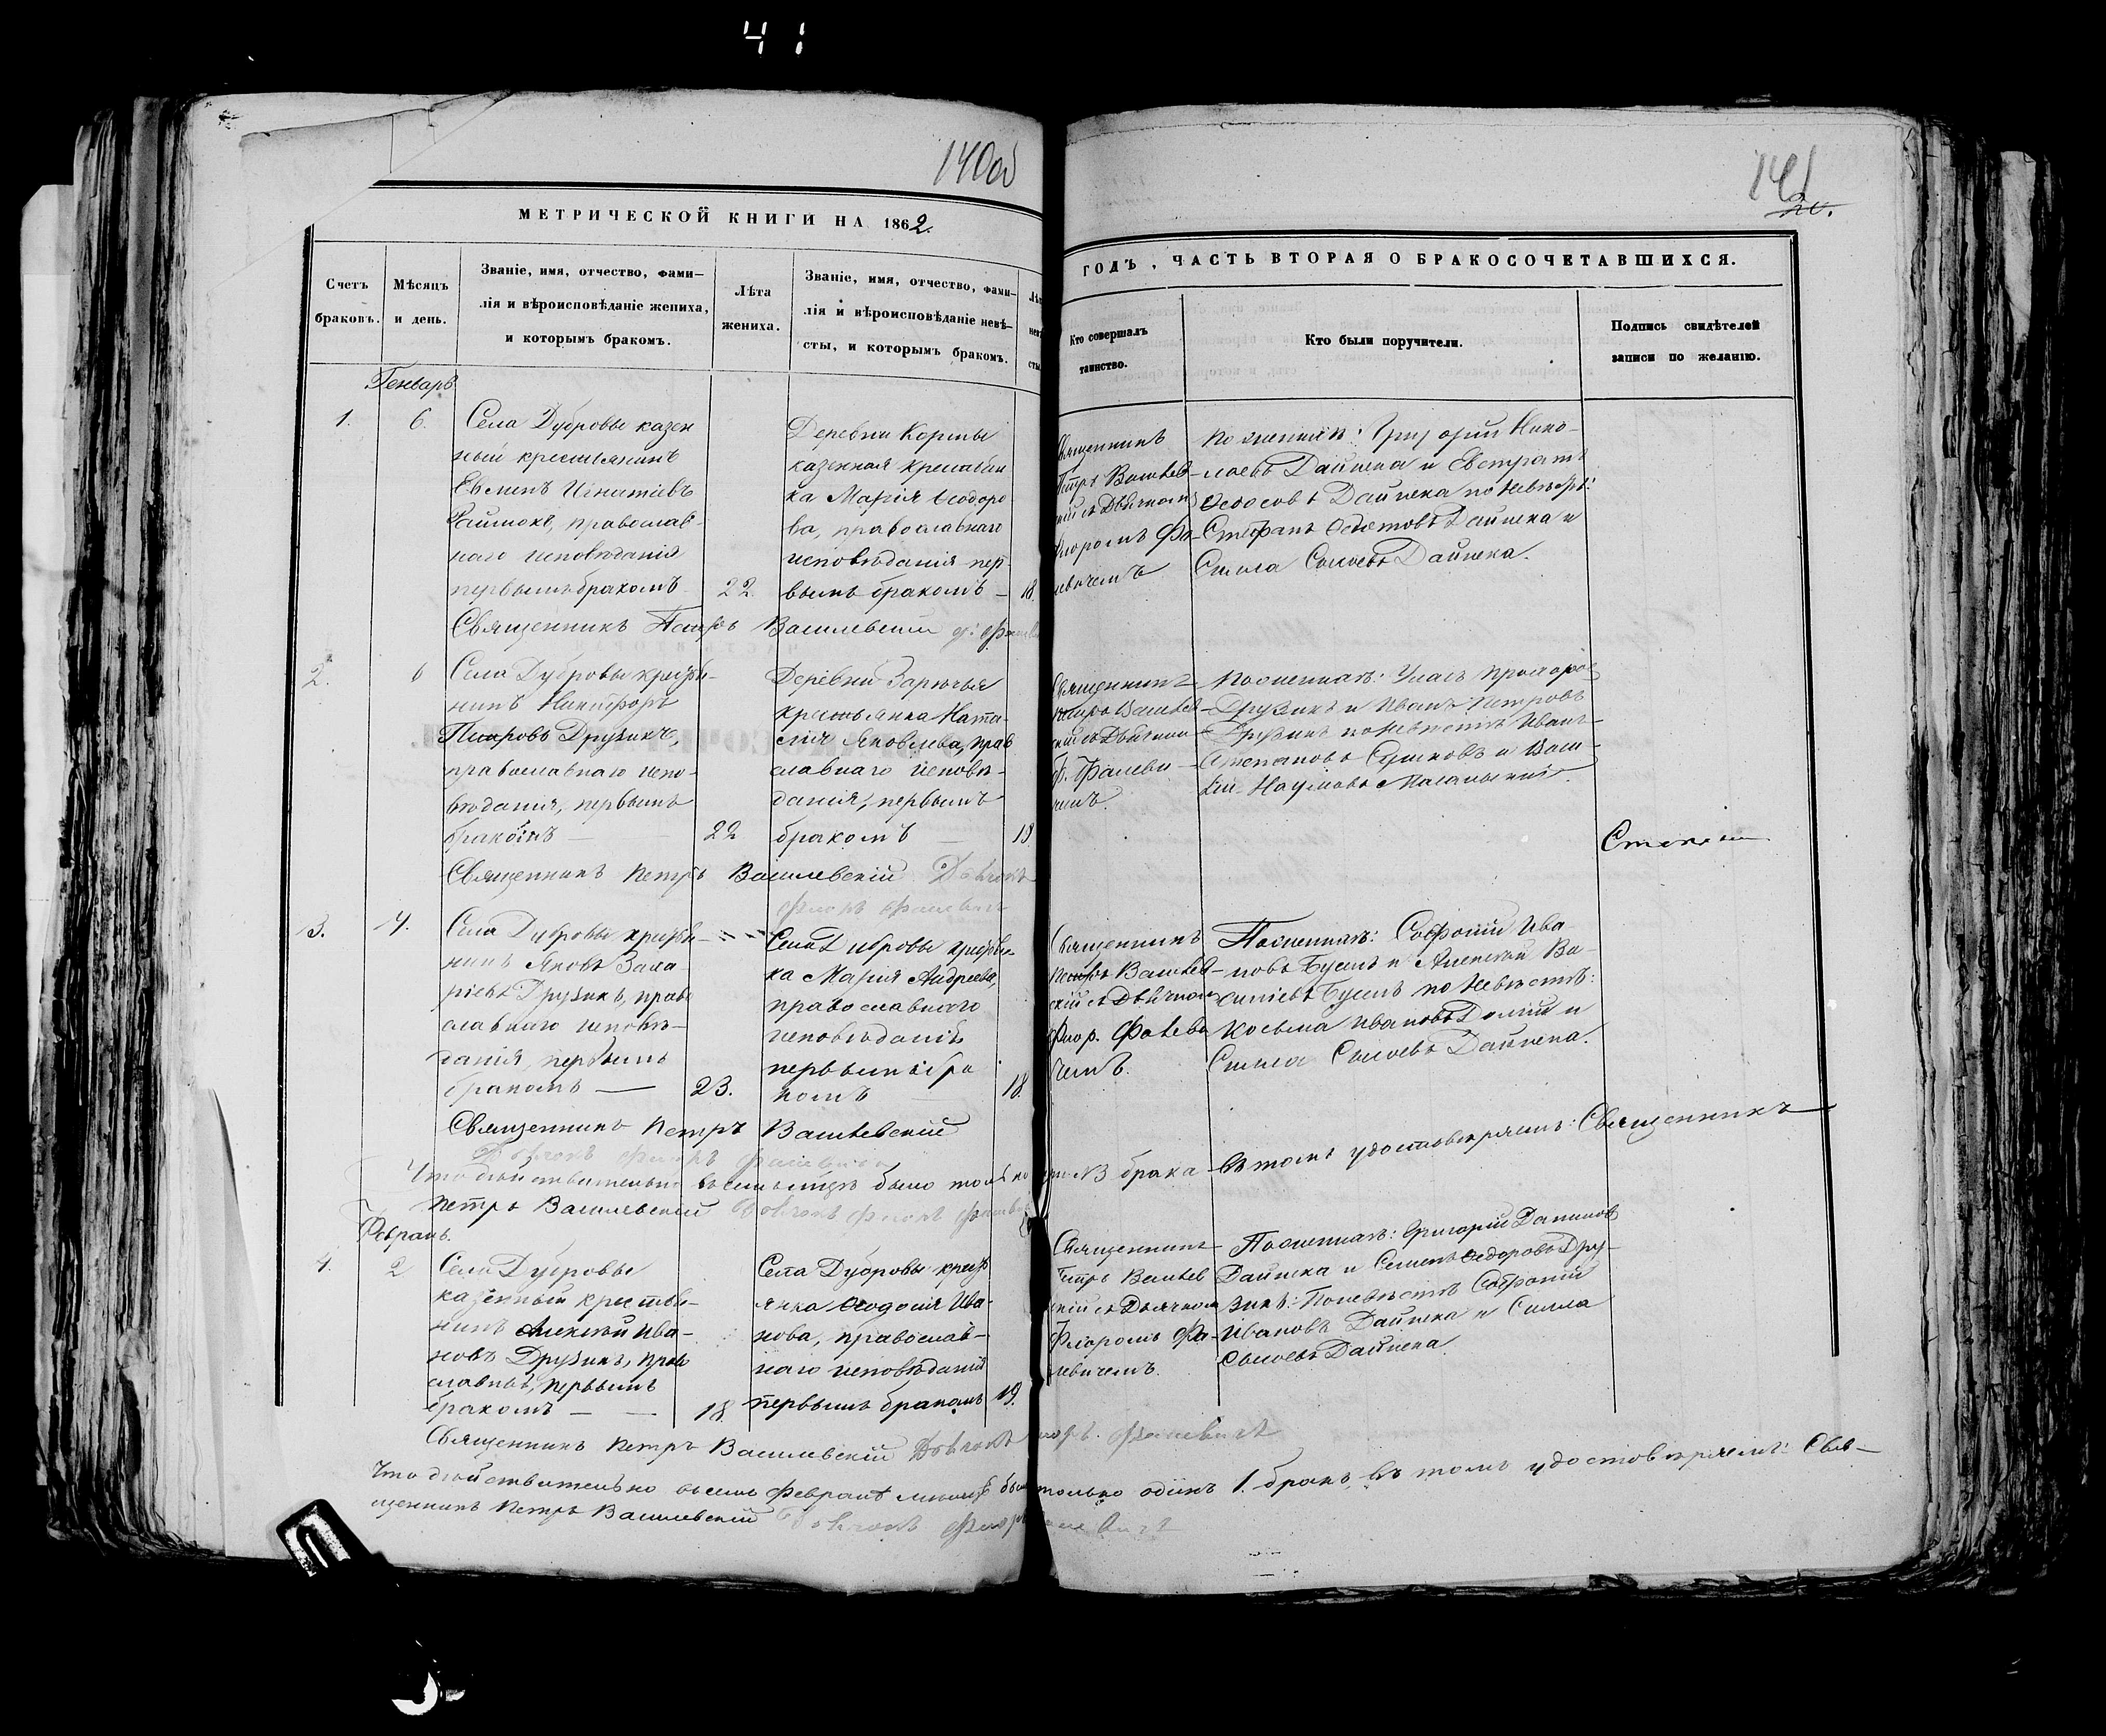 41
140об
141
МЕТРИЧЕСКОЙ КНИГИ НА 1862.
ГОДЪ, ЧАСТЬ ВТОРАЯ О БРАКОСОЧЕТАВШИХСЯ.
Счетъ браковъ.
Мѣсяцъ и день.
Званіе, имя, отчество, фами-
лія и вѣроисповѣданіе жениха,
и которымъ бракомъ.
Лѣта
жениха.
Званіе, имя, отчество, фами-
лія и вѣроисповѣданіе невѣ-
сты, и которымъ бракомъ.
Кто совершалъ
таинство.
Кто были поручители.
Подпись свидѣтелей
записи по желанію.
Генварь
1.
6.
Села Дубровы казен
ный крестьянинъ
Игнатіевъ
православ-
наго исповѣданія
первымъ бракомъ
22.
Деревни
казенная крестьян
ка Марія Ѳеодоро
ва, православнаго
исповѣданія пер-
вымъ бракомъ
18.
Священникъ
Петръ Василев-
скій съ Дьячкомъ
Флоромъ Фа-
левичемъ
по женихѣ: Григорій Нико-
лаевъ Дайнека и Евстратъ
Ѳедосовъ Дайнека по невѣстѣ:
Стефанъ Дайнека и
Сысоевъ Дайнека.
Священникъ Петръ Василевскій
2.
6
Села Дубровы крестья-
нинъ Никифоръ
Петровъ Друзикъ,
православнаго испо-
вѣданія, первымъ
бракомъ
22
Деревни Заречья
крестьянка Ната-
лія Яковлева, прав
славнаго исповѣ-
данія, первымъ
бракомъ
19
Священникъ
Петръ Василев-
скій съ Дьячкомъ
Ф. Фалеви-
чемъ.
По женихѣ:
Друзикъ и Иванъ Петровъ
Друзикъ по невѣстѣ Иванъ
Степановъ и Васи-
лій Наумовъ
Священникъ Петръ Василевскій Дьячокъ
Флоръ Фалевичъ
3.
Села Дубровы крестья-
нинъ Яковъ Заха
ріевъ Друзикъ, право
славнаго исповѣ-
данія, первымъ
бракомъ
23.
Села Дубровы крестьян-
ка Марія Андреева,
православнаго
исповѣданія
первымъ бра
комъ
18.
Священникъ
Петръ Василев-
скій съ Дьячкомъ
Флор. Фалеви
чемъ.
По женихѣ: Софроній Ива-
новъ и Алексѣй Ва-
силіевъ по невѣстѣ:
Косьма Ивановъ и
Сысоевъ Дайнека.
Священникъ Петръ Василевскій
Дьячокъ Флоръ Фалевичъ
Что дѣйствительно было только три №3 брака въ томъ удостовѣряемъ: Священникъ
Петръ Василевскій Дьячокъ Флоръ Фалевичъ
Февраль.
4.
2
Села Дубровы
казенный крестья-
нинъ Алексѣй Ива-
новъ Друзикъ, право
славный, первымъ
бракомъ
18.
Села Дубровы крестья
янка Ѳеодосія Ива-
нова, православ-
наго исповѣданія
первымъ бракомъ
19.
Священникъ
Петръ Василев
скій съ Дьячкомъ
Флоромъ Фа-
левичемъ.
По женихѣ: Григорій Даниловъ
Дайнека и Семенъ Ѳедоровъ Дру-
зикъ: По невѣстѣ Софроній
Ивановъ Дайнека и
Сысоевъ Дайнека.
Священникъ Петръ Василевскій Дьячокъ Флоръ Фалевичъ
Что дѣйствительно въ семъ Февралѣ мѣсяцѣ былъ только одинъ 1. бракъ, въ томъ удостовѣряемъ: Свя-
щенникъ Петръ Василевскій Дьячокъ Флоръ Фалевичъ